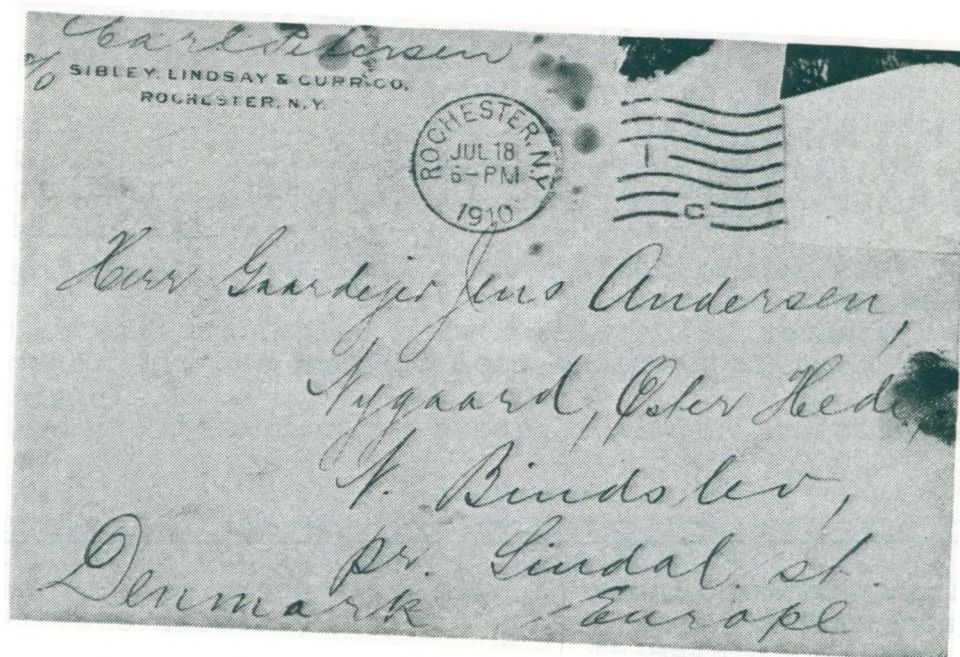 Carl Petersen
c/o SIBLEY, LINDSAY & CURR CO.
ROCHESTER, N.Y.
ROCHESTER, N.Y.
JUL 18
6-PM
1910
1
C
Herr Gaardejer Jens Andersen,
Nygaard, Øster Hede,
N. Bindslev,
pr. Sindal st.
Denmark Europe